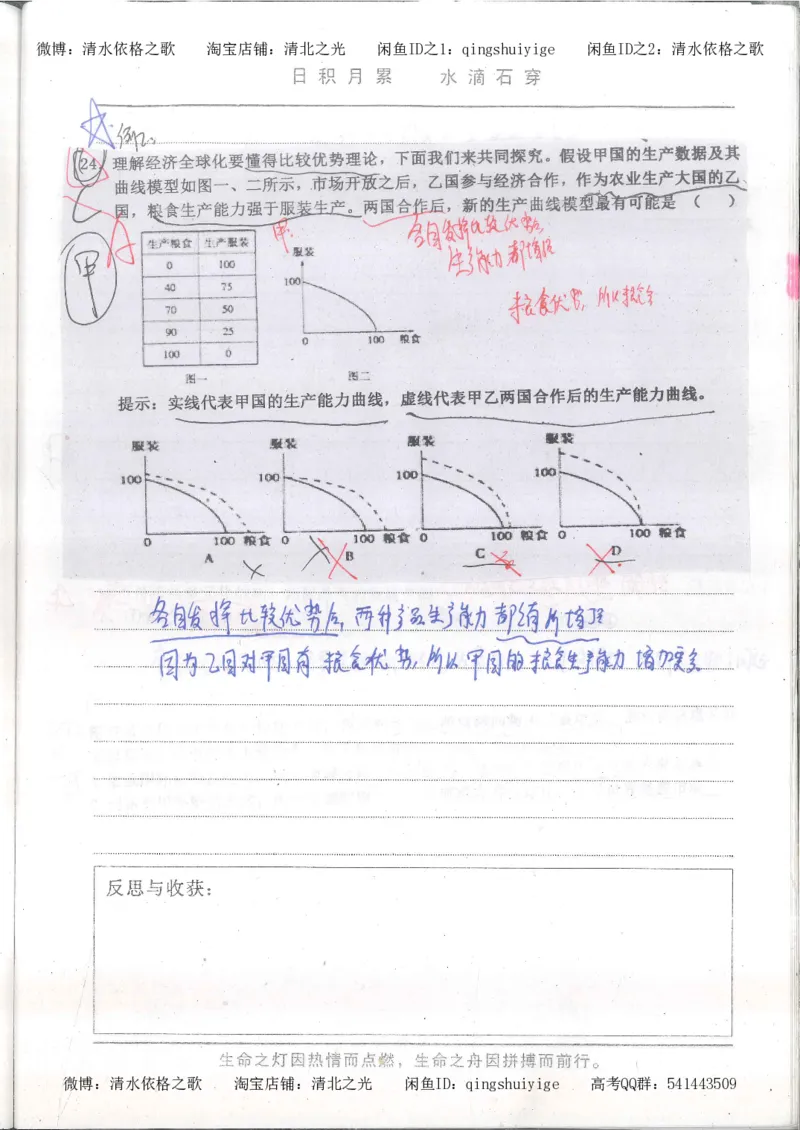 微博：清水依格之歌 淘宝店铺：清北之光 闲鱼ID之1：qingshuiyige 闲鱼ID之2：清水依格之歌
日积月累 水滴石穿
24 理解经济全球化要懂得比较优势理论，下面我们来共同探究。假设甲国的生产数据及其
曲线模型如图一、二所示，市场开放之后，乙国参与经济合作，作为农业生产大国的乙
国，粮食生产能力强于服装生产。两国合作后，新的生产曲线模型最有可能是（ ）
A
甲
甲
各自发挥比较优势后
生产能力都增强
生产粮食 生产服装
0 100
40 75
70 50
90 25
100 0
图一
服装
100
0 100 粮食
图二
提示：实线代表甲国的生产能力曲线，虚线代表甲乙两国合作后的生产能力曲线。
服装 服装 服装 服装
100 100 100 100
0 100 粮食 0 100 粮食 0 100 粮食 0 100 粮食
A B C D
各自发挥比较优势后，两种产品生产能力都有所增强
因为乙国对甲国有粮食优势，所以甲国的粮食生产能力增加更多
反思与收获：
生命之灯因热情而点燃，生命之舟因拼搏而前行。
微博：清水依格之歌 淘宝店铺：清北之光 闲鱼ID：qingshuiyige 高考QQ群：541443509